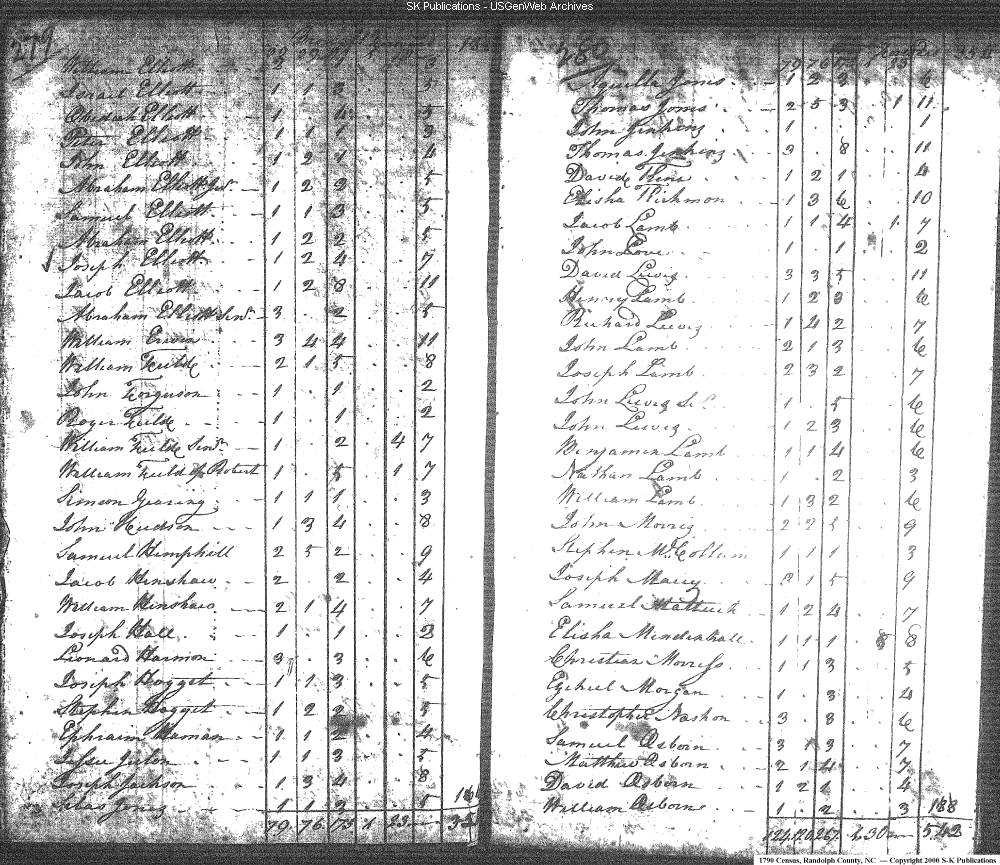 SK Publications - USGenWeb Archives
279
William Elliott 3
Israel Elliott 1 1 3 . . 5
Obediah Elliott 1 . 4 . . 5
Peter Elliott 1 1 1 . . 3
John Elliott 1 2 1 . . 4
Abraham Elliott Junr 1 2 2 . . 5
Samuel Elliott 1 1 3 . . 5
Abraham Elliott 1 2 2 . . 5
Joseph Elliott 1 2 4 . . 7
Jacob Elliott 1 2 8 . . 11
Abraham Elliott Senr 3 . 2 . . 5
William Erwin 3 4 4 . . 11
William Feilds 2 1 5 . . 8
John Forguson 1 . 1 . . 2
Roger Feilds 1 . 1 . . 2
William Feilds Senr 1 . 2 . 4 7
William Feild of Robert 1 . 5 . 1 7
Simeon Gearing 1 1 1 . . 3
John Hudson 1 3 4 . . 8
Samuel Hemphill 2 5 2 . . 9
Jacob Hinshaw 2 . 2 . . 4
William Hinshaw 2 1 4 . . 7
Joseph Hall 1 . 1 . . 2
Leonard Harmon 3 . 3 . . 6
Joseph Hogget 1 1 3 . . 5
Stephen Hogget 1 2 2 . . 5
Ephraim Haman 1 1 2 . . 4
1 1 3 . . 5
Joseph Jackson 1 3 4 . . 8
Silas Jones 1 1 . . 5
79 76 23
280
Aquilla Jones 1 2 3 . . 6
Thomas Jones 2 5 3 . 1 11
John Jinkins 1 . . . . 1
Thomas Jinkins 3 . 8 . . 11
David 1 2 1 . . 4
Elisha Kirkmon 1 3 6 . . 10
Jacob Lamb 1 1 4 . 1 7
John Love 1 . 1 . . 2
David Lewis 3 3 5 . . 11
Henry Lamb 1 2 3 . . 6
Richard Lewis 1 4 2 . . 7
John Lamb 2 1 3 . . 6
Joseph Lamb 2 3 2 . . 7
John Lewis Sr 1 . 5 . . 6
John Lewis 1 2 3 . . 6
Benjamin Lamb 1 1 4 . . 6
Nathan Lamb 1 . 2 . . 3
William Lamb 1 3 2 . . 6
John Morris 2 2 5 . . 9
Stephen McCollum 1 1 1 . . 3
Joseph Macey 3 1 5 . . 9
Samuel Mattuck 1 2 4 . . 7
Elisha Mindinhall 1 1 1 . 5 8
Christian Morress 1 1 3 . . 5
Ezehiel Morgan 1 . 3 . . 4
Christopher Nashon 3 . 3 . . 6
Samuel Osborn 3 1 3 . . 7
Matthew Osborn 2 1 4 . . 7
David Osborn 1 2 1 . . 4
William Osborne 1 . 2 . . 3 188
124 120 267 2 30 543
1790 Census, Randolph County, NC — Copyright 2000 S-K Publications